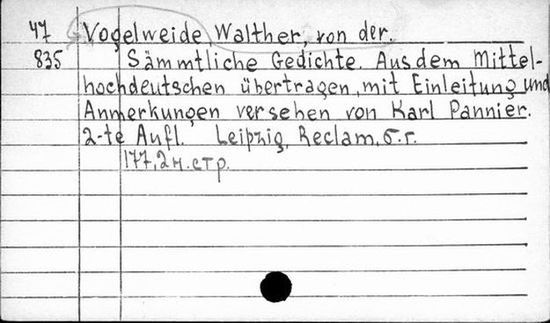 47 Vogelweide, Walther, von der.
835 Sämmtliche Gedichte. Aus dem Mittel-
hochdeutschen übertragen, mit Einleitung und
Anmerkungen versehen von Karl Pannier.
2-te Aufl. Leipzig, Reclam, б.г.
177, 2 н. стр.